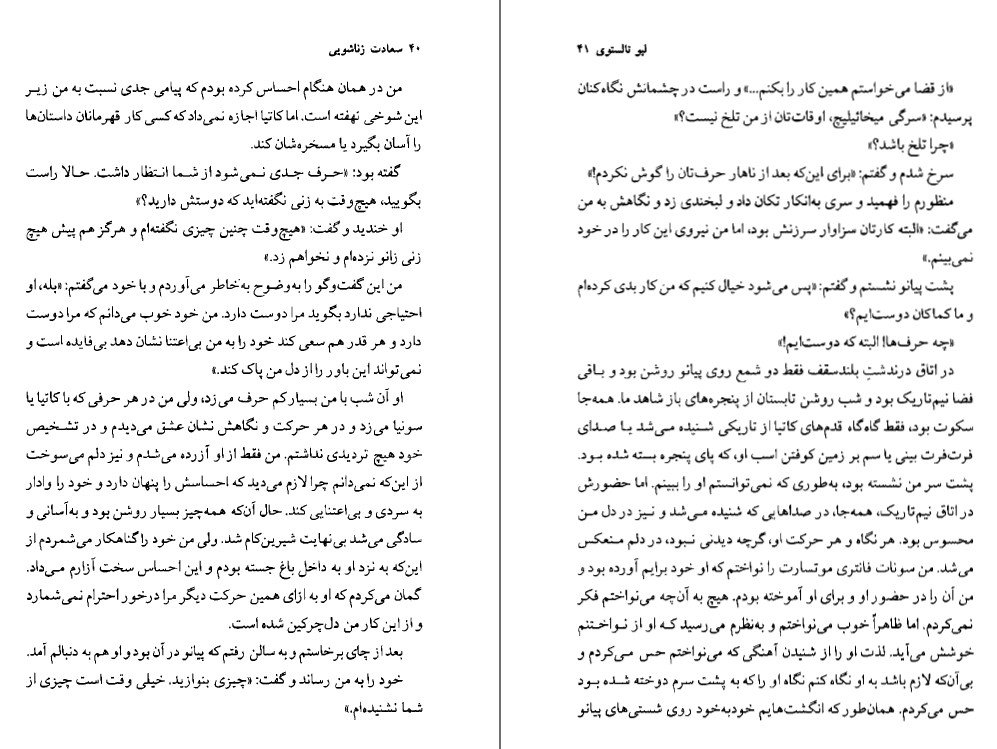 ۴۰ سعادت زناشویی
من در همان هنگام احساس کرده بودم که پیامی جدی نسبت به من زیر
این شوخی نهفته است. اما کاتیا اجازه نمی‌داد که کسی کار قهرمانان داستان‌ها
را آسان بگیرد یا مسخره‌شان کند.
گفته بود: «حرف جدی نمی‌شود از شما انتظار داشت. حالا راست
بگویید، هیچ‌وقت به زنی نگفته‌اید که دوستش دارید؟»
او خندید و گفت: «هیچ‌وقت چنین چیزی نگفته‌ام و هرگز هم پیش هیچ
زنی زانو نزده‌ام و نخواهم زد.»
من این گفت‌وگو را به‌وضوح به‌خاطر می‌آوردم و با خود می‌گفتم: «بله، او
احتیاجی ندارد بگوید مرا دوست دارد. من خود خوب می‌دانم که مرا دوست
دارد و هر قدر هم سعی کند خود را به من بی‌اعتنا نشان دهد بی‌فایده است و
نمی‌تواند این باور را از دل من پاک کند.»
او آن شب با من بسیار کم حرف می‌زد، ولی من در هر حرفی که با کاتیا یا
سونیا می‌زد و در هر حرکت و نگاهش نشان عشق می‌دیدم و در تشخیص
خود هیچ تردیدی نداشتم. من فقط از او آزرده می‌شدم و نیز دلم می‌سوخت
از این‌که نمی‌دانم چرا لازم می‌دید که احساسش را پنهان دارد و خود را وادار
به سردی و بی‌اعتنایی کند. حال آن‌که همه‌چیز بسیار روشن بود و به‌آسانی و
سادگی می‌شد بی‌نهایت شیرین‌کام شد. ولی من خود را گناهکار می‌شمردم از
این‌که به نزد او به داخل باغ جسته بودم و این احساس سخت آزارم می‌داد.
گمان می‌کردم که او به ازای همین حرکت دیگر مرا درخور احترام نمی‌شمارد
و از این کار من دل‌چرکین شده است.
بعد از چای برخاستم و به سالن رفتم که پیانو در آن بود و او هم به دنبالم آمد.
خود را به من رساند و گفت: «چیزی بنوازید. خیلی وقت است چیزی از
شما نشنیده‌ام.»
لیو تالستوی ۴۱
«از قضا می‌خواستم همین کار را بکنم...» و راست در چشمانش نگاه‌کنان
پرسیدم: «سرگی میخائیلیچ، اوقات‌تان از من تلخ نیست؟»
«چرا تلخ باشد؟»
سرخ شدم و گفتم: «برای این‌که بعد از ناهار حرف‌تان را گوش نکردم!»
منظورم را فهمید و سری به‌انکار تکان داد و لبخندی زد و نگاهش به من
می‌گفت: «البته کارتان سزاوار سرزنش بود، اما من نیروی این کار را در خود
نمی‌بینم.»
پشت پیانو نشستم و گفتم: «پس می‌شود خیال کنیم که من کار بدی کرده‌ام
و ما کماکان دوست‌ایم؟»
«چه حرف‌ها! البته که دوست‌ایم!»
در اتاق درندشتِ بلندسقف فقط دو شمع روی پیانو روشن بود و باقی
فضا نیم‌تاریک بود و شب روشن تابستان از پنجره‌های باز شاهد ما. همه‌جا
سکوت بود، فقط گاه‌گاه قدم‌های کاتیا از تاریکی شنیده می‌شد یا صدای
فرت‌فرت بینی یا سم بر زمین کوفتن اسب او، که پای پنجره بسته شده بود.
پشت سر من نشسته بود، به‌طوری که نمی‌توانستم او را ببینم. اما حضورش
در اتاق نیم‌تاریک، همه‌جا، در صداهایی که شنیده می‌شد و نیز در دل من
محسوس بود. هر نگاه و هر حرکت او، گرچه دیدنی نبود، در دلم منعکس
می‌شد. من سونات فانتزی موتسارت را نواختم که او خود برایم آورده بود و
من آن را در حضور او و برای او آموخته بودم. هیچ به آن‌چه می‌نواختم فکر
نمی‌کردم. اما ظاهراً خوب می‌نواختم و به‌نظرم می‌رسید که او از نواختنم
خوشش می‌آید. لذت او را از شنیدن آهنگی که می‌نواختم حس می‌کردم و
بی‌آن‌که لازم باشد به او نگاه کنم نگاه او را که به پشت سرم دوخته شده بود
حس می‌کردم. همان‌طور که انگشت‌هایم خودبه‌خود روی شستی‌های پیانو